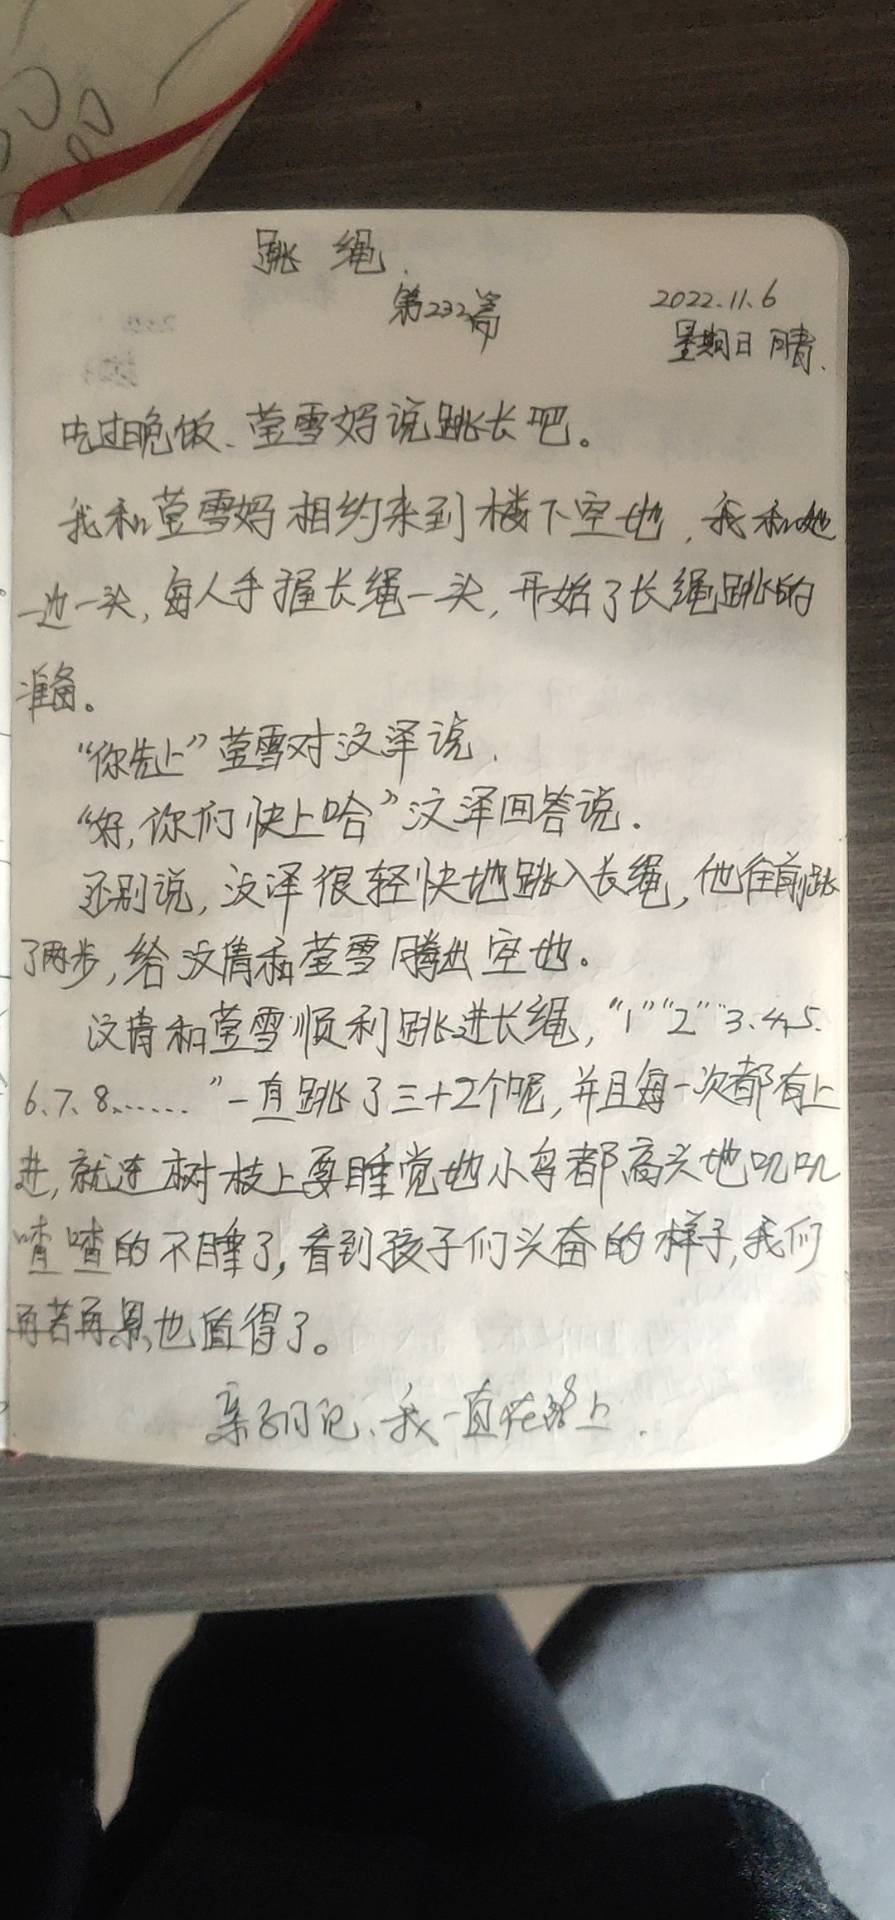 跳绳.
第232篇
2022.11.6
星期日 晴.
吃过晚饭、莹雪妈说跳长吧。
我和莹雪妈相约来到楼下空地,我和她
一边一头,每人手握长绳一头,开始了长绳跳的
准备。
“你先上”莹雪对汶泽说.
“好,你们快上哈”汶泽回答说.
还别说,汶泽很轻快地跳入长绳,他往前跳
了两步,给汶倩和莹雪腾出空地。
汶倩和莹雪顺利跳进长绳,“1”“2”“3.4.5.
6.7.8......”一直跳了三十2个呢,并且每一次都有上
进,就连树枝上要睡觉地小鸟都高兴地叽叽
喳喳的不睡了,看到孩子们兴奋的样子,我们
再苦再累也值得了。
亲子日记、我一直在路上.